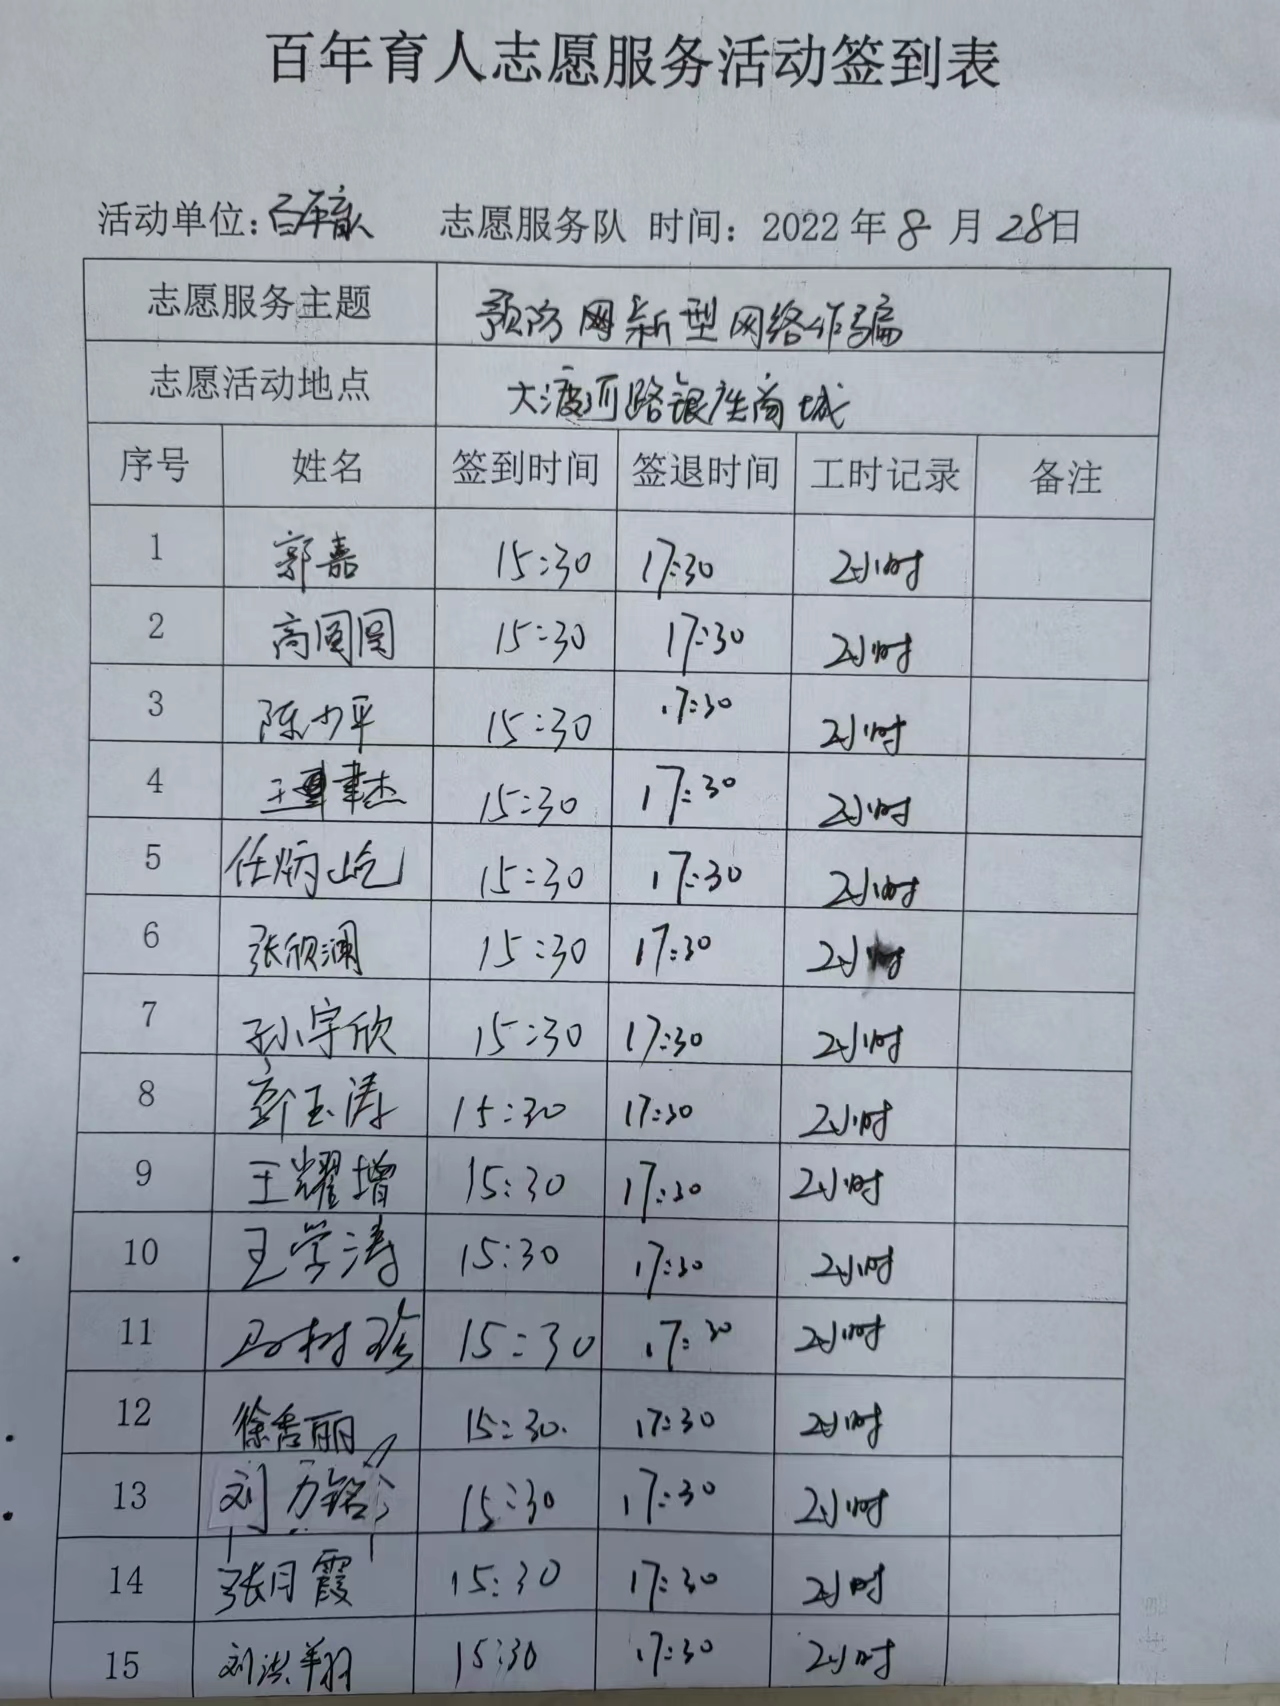 百年育人志愿服务活动签到表
活动单位：百年育人 志愿服务队 时间：2022年8月28日
志愿服务主题 预防网新型网络诈骗
志愿活动地点 大渡河路银座商城
序号 姓名 签到时间 签退时间 工时记录 备注
1 郭嘉 15:30 17:30 2小时
2 高圆圆 15:30 17:30 2小时
3 陈少平 15:30 17:30 2小时
4 王聿杰 15:30 17:30 2小时
5 任炳屹 15:30 17:30 2小时
6 张欣澜 15:30 17:30 2小时
7 孙宇欣 15:30 17:30 2小时
8 玉涛 15:30 17:30 2小时
9 王耀增 15:30 17:30 2小时
10 王学涛 15:30 17:30 2小时
11 15:30 17:30 2小时
12 徐秀丽 15:30 17:30 2小时
13 刘万铭 15:30 17:30 2小时
14 张月霞 15:30 17:30 2小时
15 刘洪翔 15:30 17:30 2小时